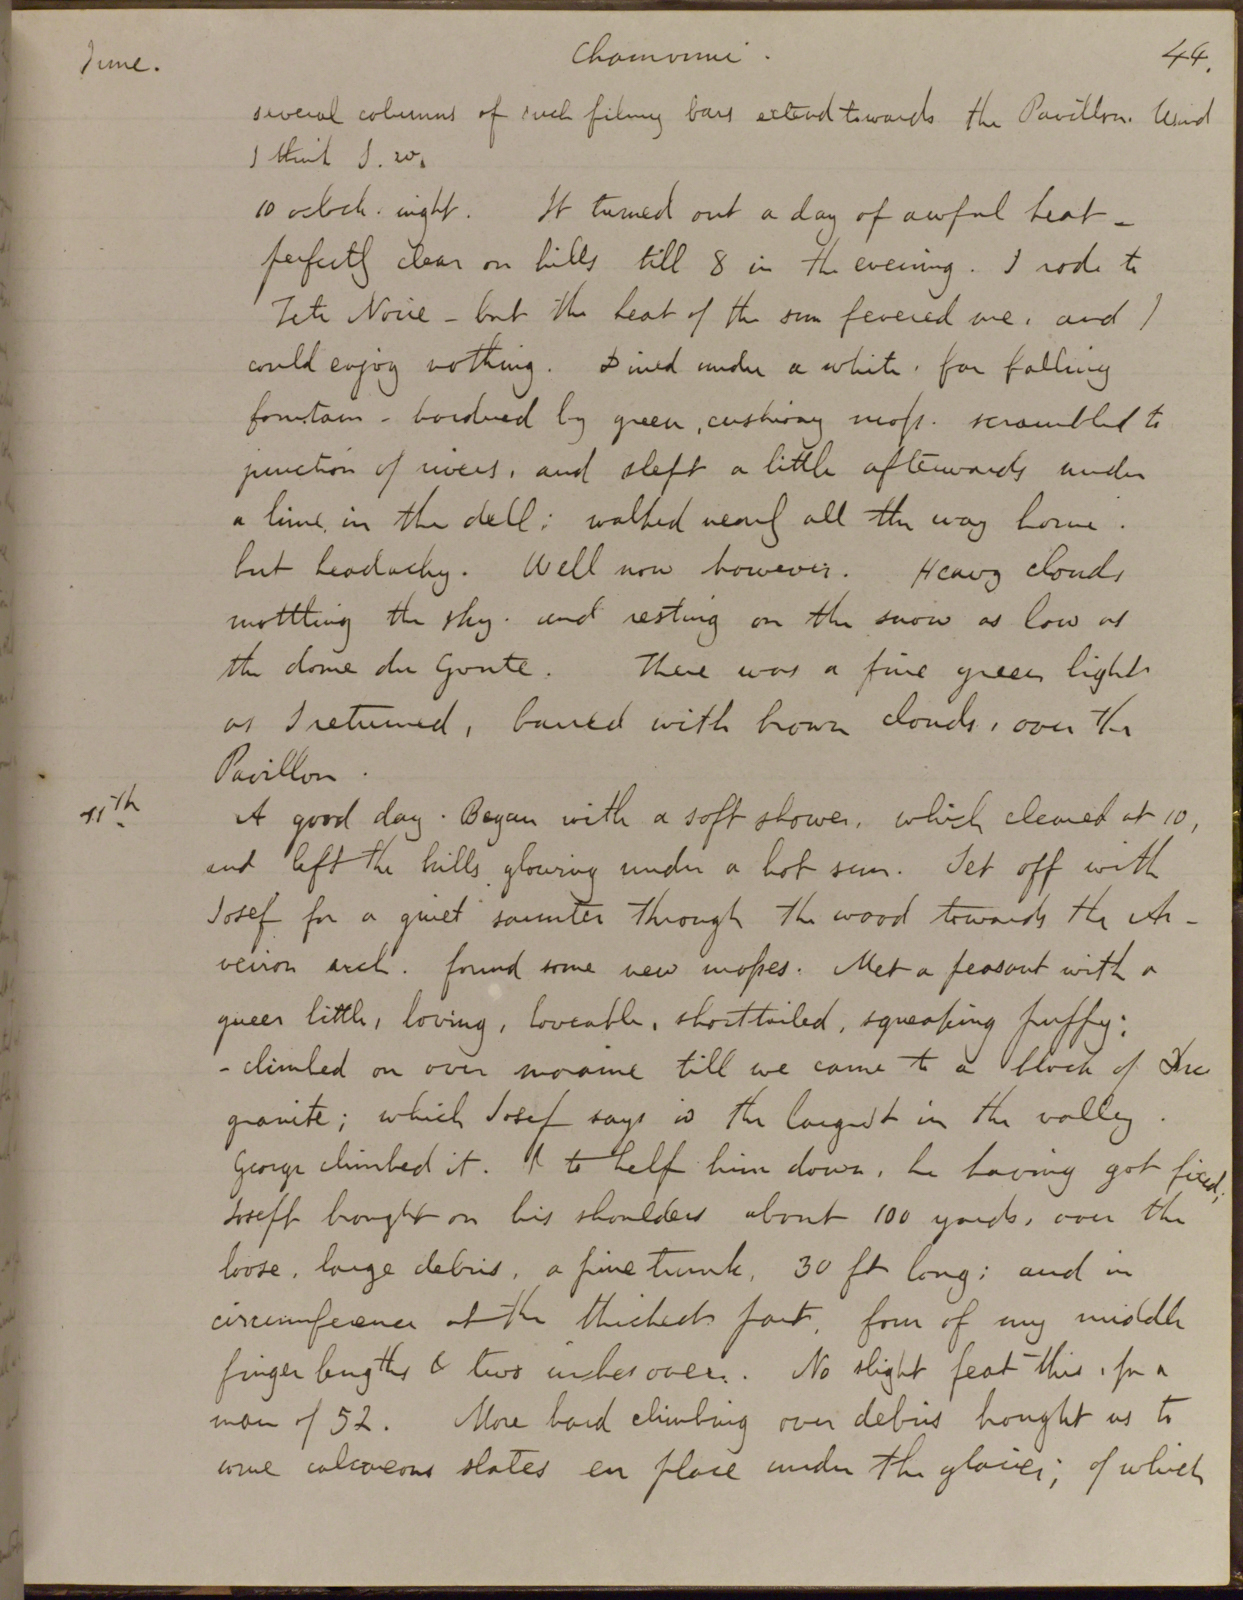 June. Chamouni. 44.
several columns of such filmy bars extend towards the Pavillon. Wind
I think S. W.
10 oclock. night. It turned out a day of awful heat –
perfectly clear on hills till 8 in the evening. I rode to
Tete Noire – but the heat of the sun fevered me, and I
could enjoy nothing. Dined under a white, far falling
fountain – bordered by green, cushiony moss. scrambled to
junction of rivers, and slept a little afterwards under
a lime, in the dell; walked nearly all the way home.
but headachy. Well now however. Heavy clouds
mottling the sky. and resting on the snow as low as
the dome du Goute. There was a fine green light
as I returned, barred with brown clouds, over the
Pavillon.
11th A good day. Began with a soft shower, which cleared at 10,
and left the hills glowing under a hot sun. Set off with
Josef for a quiet saunter through the wood towards the Ar-
veiron arch. found some new mosses. Met a peasant with a
queer little, loving, loveable, shorttailed, squeaking puppy;
– climbed on over moraine till we came to a block of
granite; which Josef says is the largest in the valley.
George climbed it. & to help him down, he having got fixed,
Joseph brought on his shoulders about 100 yards, over the
loose, large debris, a pine trunk, 30 ft long; and in
circumference at the thickest part, four of my middle
finger lengths & two inches over. No slight feat this, for a
man of 52. More hard climbing over debris brought us to
some calcareous slates en place under the glacier; of which